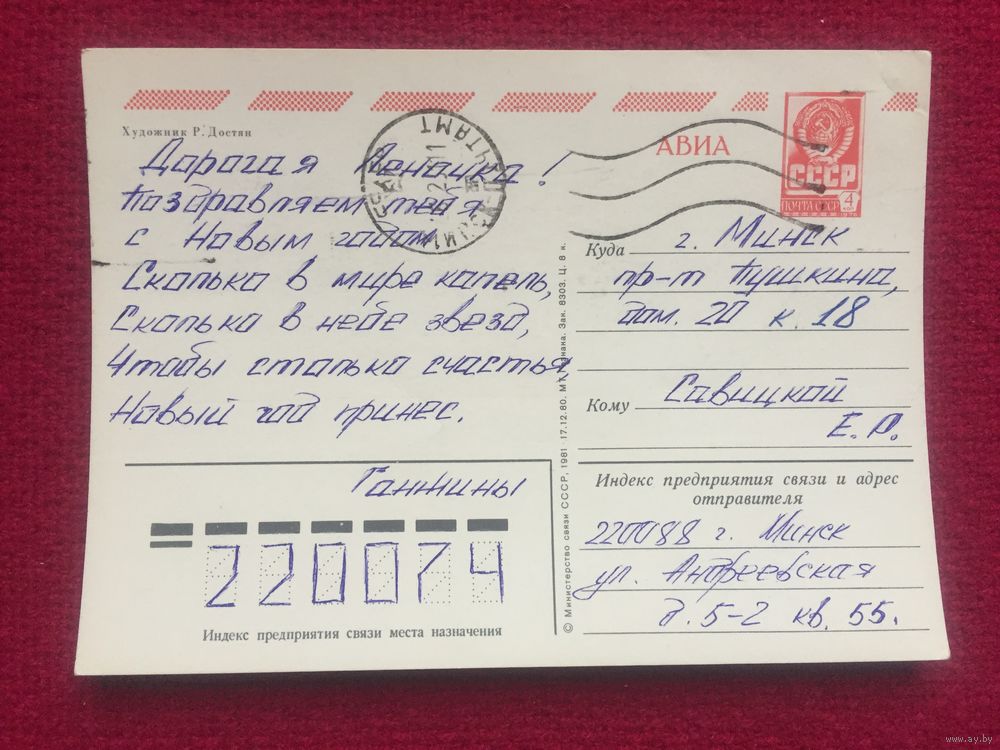 Художник Р. Достян
Дорогая Леночка!
Поздравляем тебя
с Новым годом.
Сколько в мире капель,
Сколько в небе звезд,
Чтобы столько счастья,
Новый год принес.
Ганжины
220074
Индекс предприятия связи места назначения
АВИА
СССР
ПОЧТА СССР
4
Куда г. Минск
пр-т Пушкина,
дом. 20 к. 18
Кому Савицкой
Е. Р.
Индекс предприятия связи и адрес
отправителя
220088 г. Минск
ул. Андреевская
д. 5-2 кв. 55.
© Министерство связи СССР, 1981 · 17.12.80. Зак. 8303. Ц. 8 к.
www.ay.by